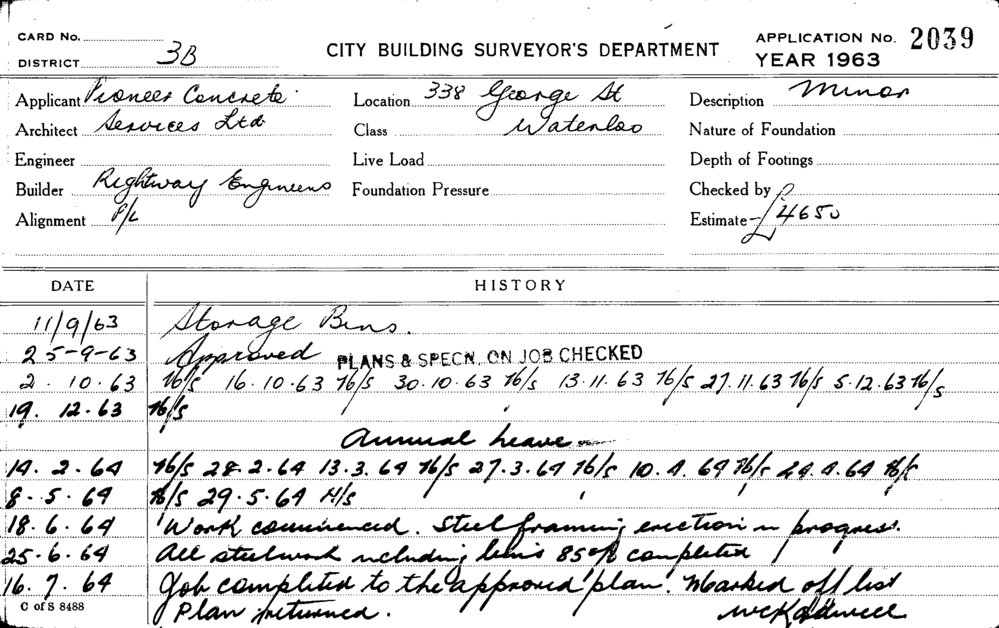 CARD No.
DISTRICT 3B
CITY BUILDING SURVEYOR'S DEPARTMENT
APPLICATION No. 2039
YEAR 1963
Applicant Pioneer Concrete
Location 338 George St
Description Minor
Architect Services Ltd
Class Waterloo
Nature of Foundation
Engineer
Live Load
Depth of Footings
Builder Rightway Engineers
Foundation Pressure
Checked by
Alignment P/L
Estimate £4650
DATE HISTORY
11/9/63 Storage Bins.
25-9-63 Approved PLANS & SPECN. ON JOB CHECKED
2. 10. 63 N/S 16.10.63 N/S 30.10.63 N/S 13.11.63 N/S 27.11.63 N/S 5.12.63 N/S
19. 12. 63 N/S
Annual Leave
14. 2. 64 N/S 28.2.64 13.3.64 N/S 27.3.64 N/S 10.4.64 N/S 24.4.64 N/S
8. 5. 64 N/S 29.5.64 N/S
18. 6. 64 Work commenced. Steel framing erection in progress.
25. 6. 64 All steelwork including bins 85% completed
16. 7. 64 Job completed to the approved plan. Marked off list
C of S 8488 Plan returned.